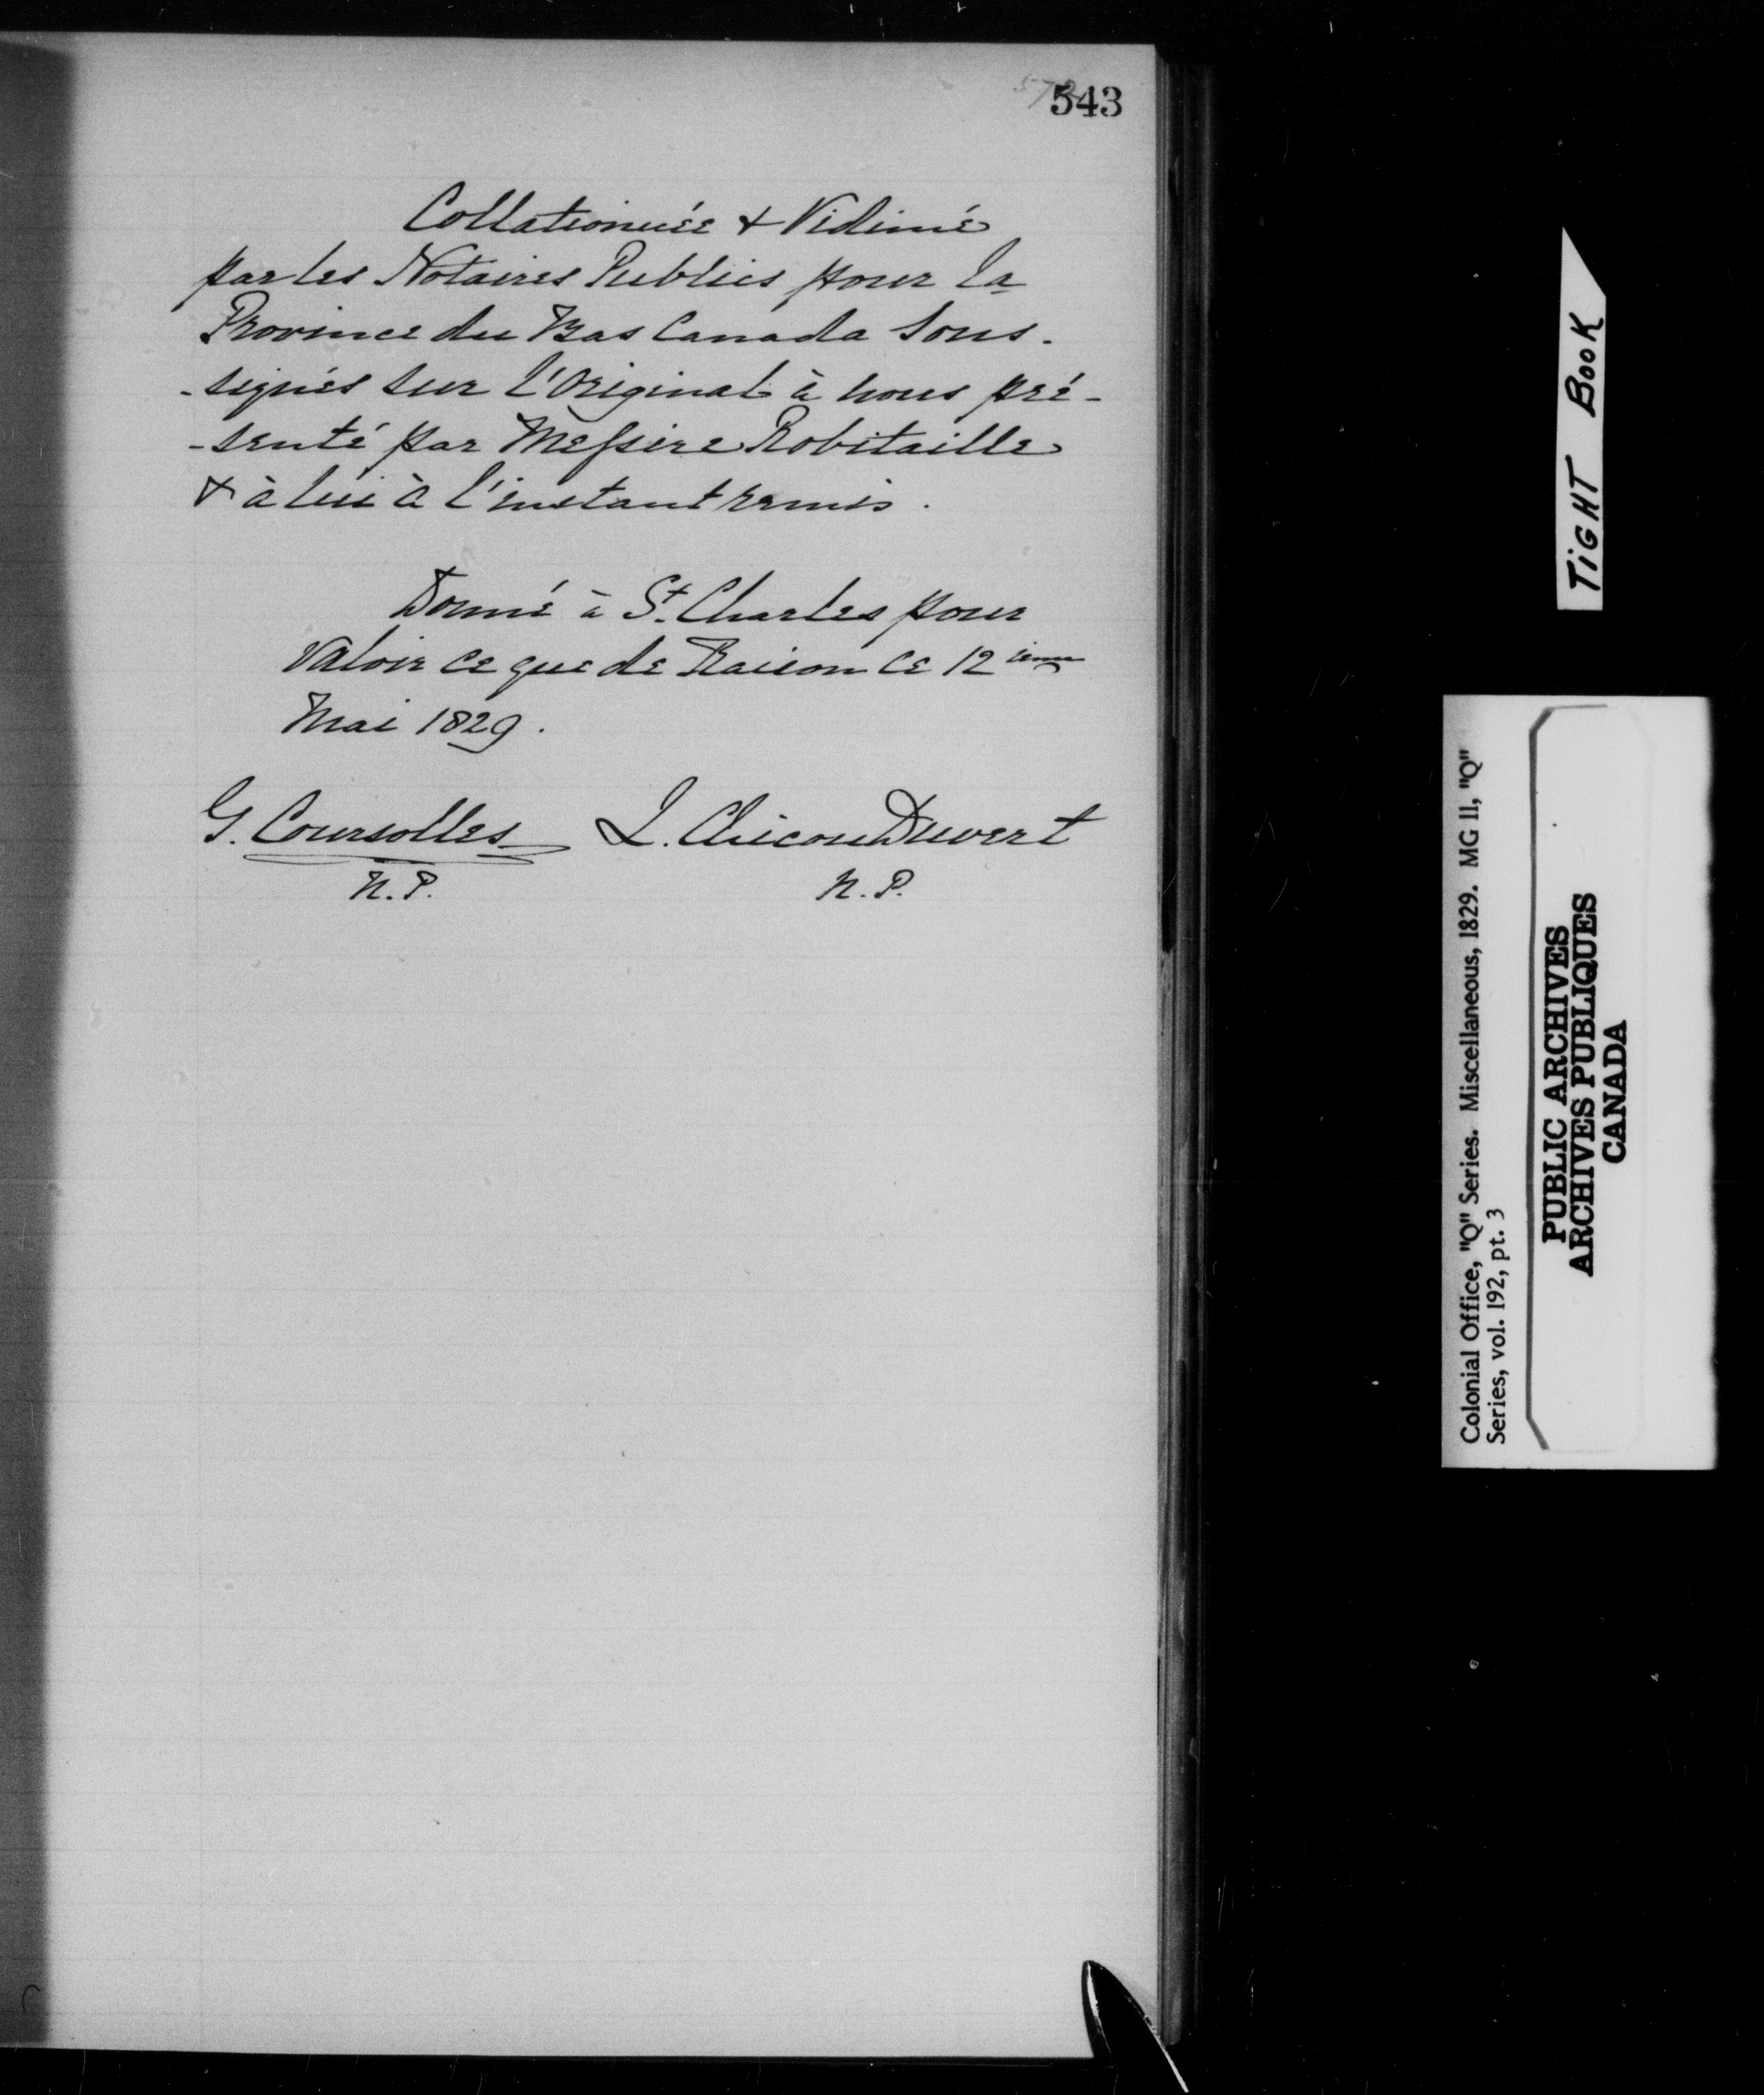 543
Collationnée & Vidimé
par les Notaires Publics pour la
Province du Bas Canada Sous-
-signés sur l'Original à nous pré-
-senté par Messire Robitaille
& à lui à l'instant remis.
Donné à St. Charles pour
Valoir ce que de Raison ce 12 ième
Mai 1829.
G. Coursolles L. Chicou Duvert
N.P. N.P.
TIGHT BOOK
Colonial Office, "Q" Series. Miscellaneous, 1829. MG 11, "Q"
Series, vol. 192, pt. 3
PUBLIC ARCHIVES
ARCHIVES PUBLIQUES
CANADA